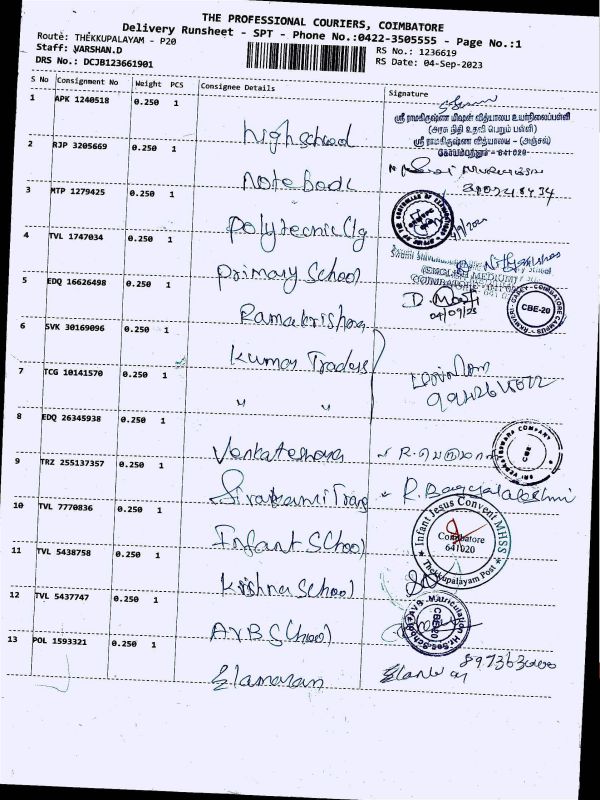 THE PROFESSIONAL COURIERS, COIMBATORE
Delivery Runsheet - SPT - Phone No.:0422-3505555 - Page No.:1
Route: THEKKUPALAYAM - P20
RS No.: 1236619
Staff: VARSHAN.D
RS Date: 04-Sep-2023
DRS No.: DCJB123661901
S No Consignment No Weight PCS Consignee Details Signature
1 APK 1240518 0.250 1 high school
ஸ்ரீ ராமகிருஷ்ண மிஷன் வித்யாலய உயர்நிலைப்பள்ளி
(அரசு நிதி உதவி பெறும் பள்ளி)
ஸ்ரீ ராமகிருஷ்ண வித்யாலய - (அஞ்சல்)
கோயம்புத்தூர் - 641 020
2 RJP 3205669 0.250 1 Note Book
3 MTP 1279425 0.250 1 Polytecnic Clg
4 TVL 1747034 0.250 1 Primary School
(ENGLISH MEDIUM)
5 EDQ 16626498 0.250 1 Ramakrishna
04/09/23
CBE-20
6 SVK 30169096 0.250 1 Kumar Traders
7 TCG 10141570 0.250 1 " "
8 EDQ 26345938 0.250 1 Venkateshwara
SRI VENKATESWARA COMPANY
CBE
9 TRZ 255137357 0.250 1
R. Bagyalakshmi
10 TVL 7770836 0.250 1 Infant School
Infant Jesus Convent MHSS
Coimbatore
641020
Thekkupalayam Post
11 TVL 5438758 0.250 1 Krishna School
12 TVL 5437747 0.250 1 AVB School
CBE-20
13 POL 1593321 0.250 1 Elamaran